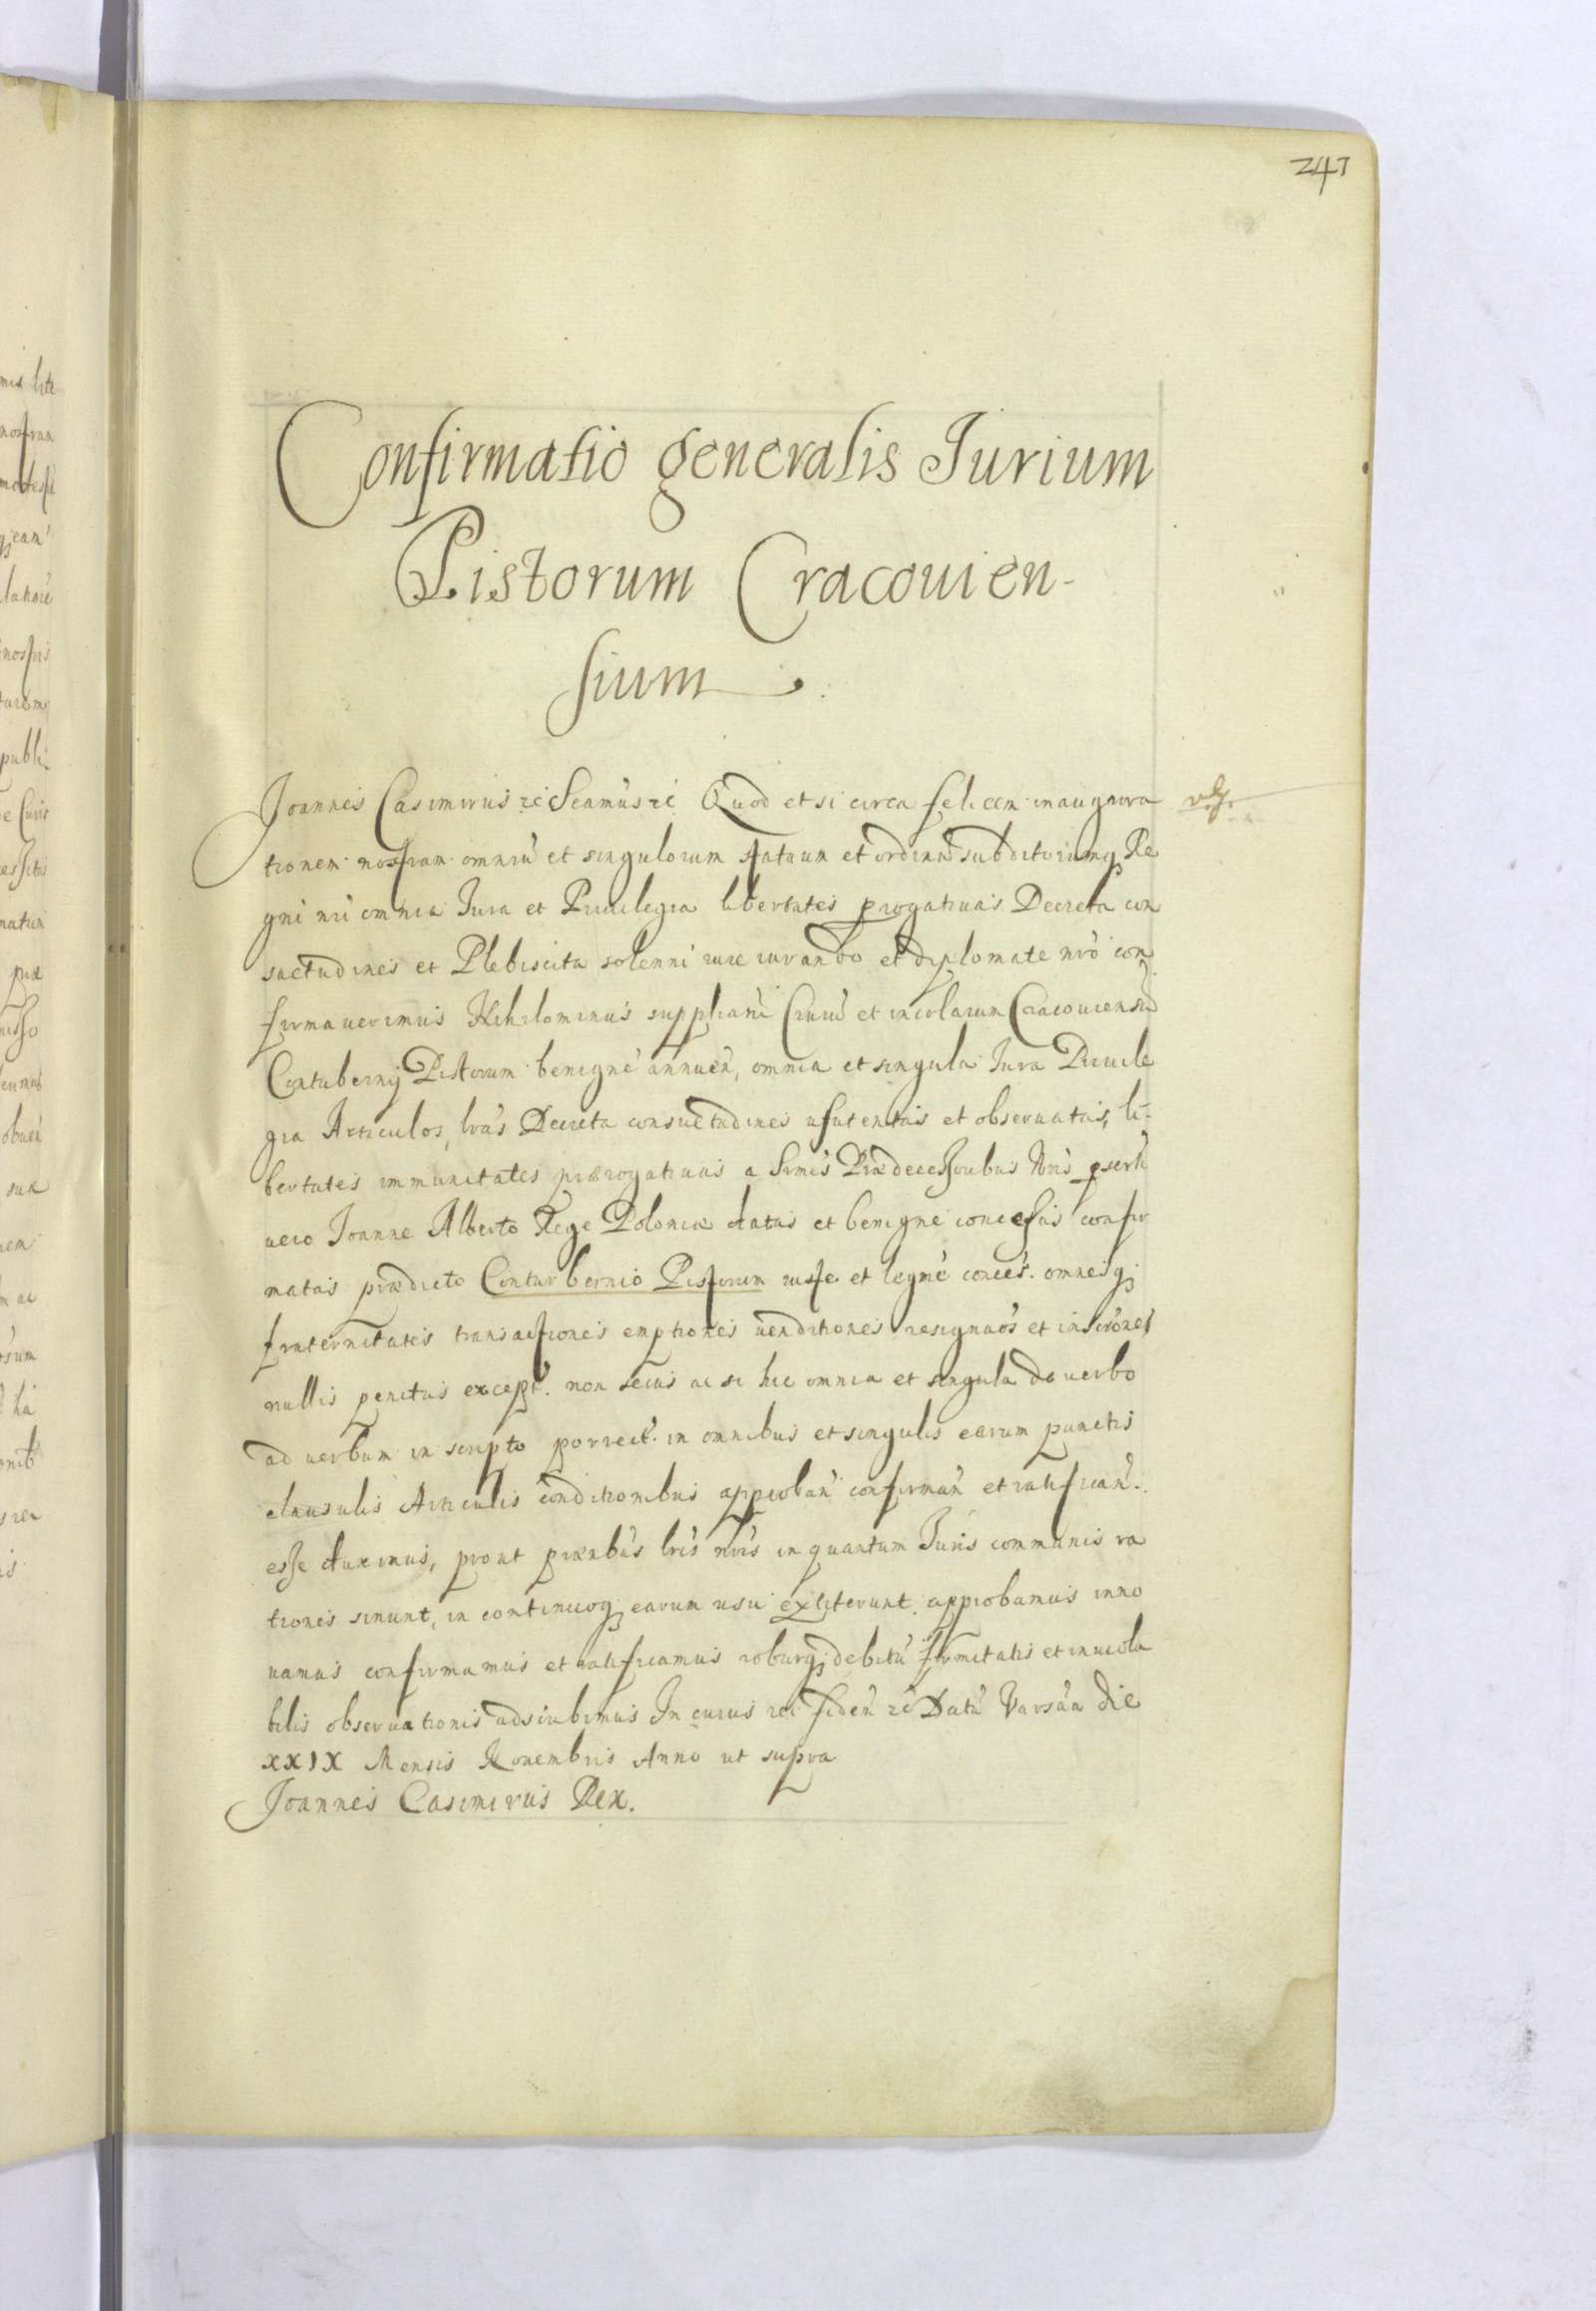 247
Confirmatio generalis Jurium
Pistorum Cracouien-
sium.
Joannes Casimirus etc Seamus etc Quod et si circa felicem inaugura
tionem nostram omniu et singulorum statuum et ordinu subditorumq Re
gni nri omnia Jura et Priuilegia libertates prrogatiuas Decreta con
suetudines et Plebiscita solenni iure iurando et diplomate nro con
firmauerimus Nihilominus supplicani Ciuiu et incolarum Cracouiensiu
Contubernij Pistorum benigne annuen, omnia et singula Jura Priuile
gia Articulos, lras Decreta consuetudines usutentas et obseruatas, li-
bertates immunitates prærogatiuas a Srmis Prædecessoribus Nris pserti
uero Joanne Alberto Rege Poloniæ datas et benigne concessas confir
matas prædicto Conturbernio Pistorum iuste et legme conces. omnesq
fraternitates transactiones emptiones uenditiones resignaoes et inscrones
nullis penitus except. non secus ac si hic omnia et singula de uerbo
ad uerbum in scripto porrect. in omnibus et singulis earum punctis
clausulis Articulis conditionibus approban confirman et ratifican.
esse duximus, prout prænbus lris nris in quantum Juris communis ra
tiones sinunt, in continuoq earum usu extiterunt. approbamus inno
uamus confirmamus et ratificamus roburq debitu firmitatis et inuiola
bilis obseruationis adscribimus In cuius rei fiden etc Datu Varsaa die
XXIX Mensis Nouembris Anno ut supra
Joannes Casimirus Rex.